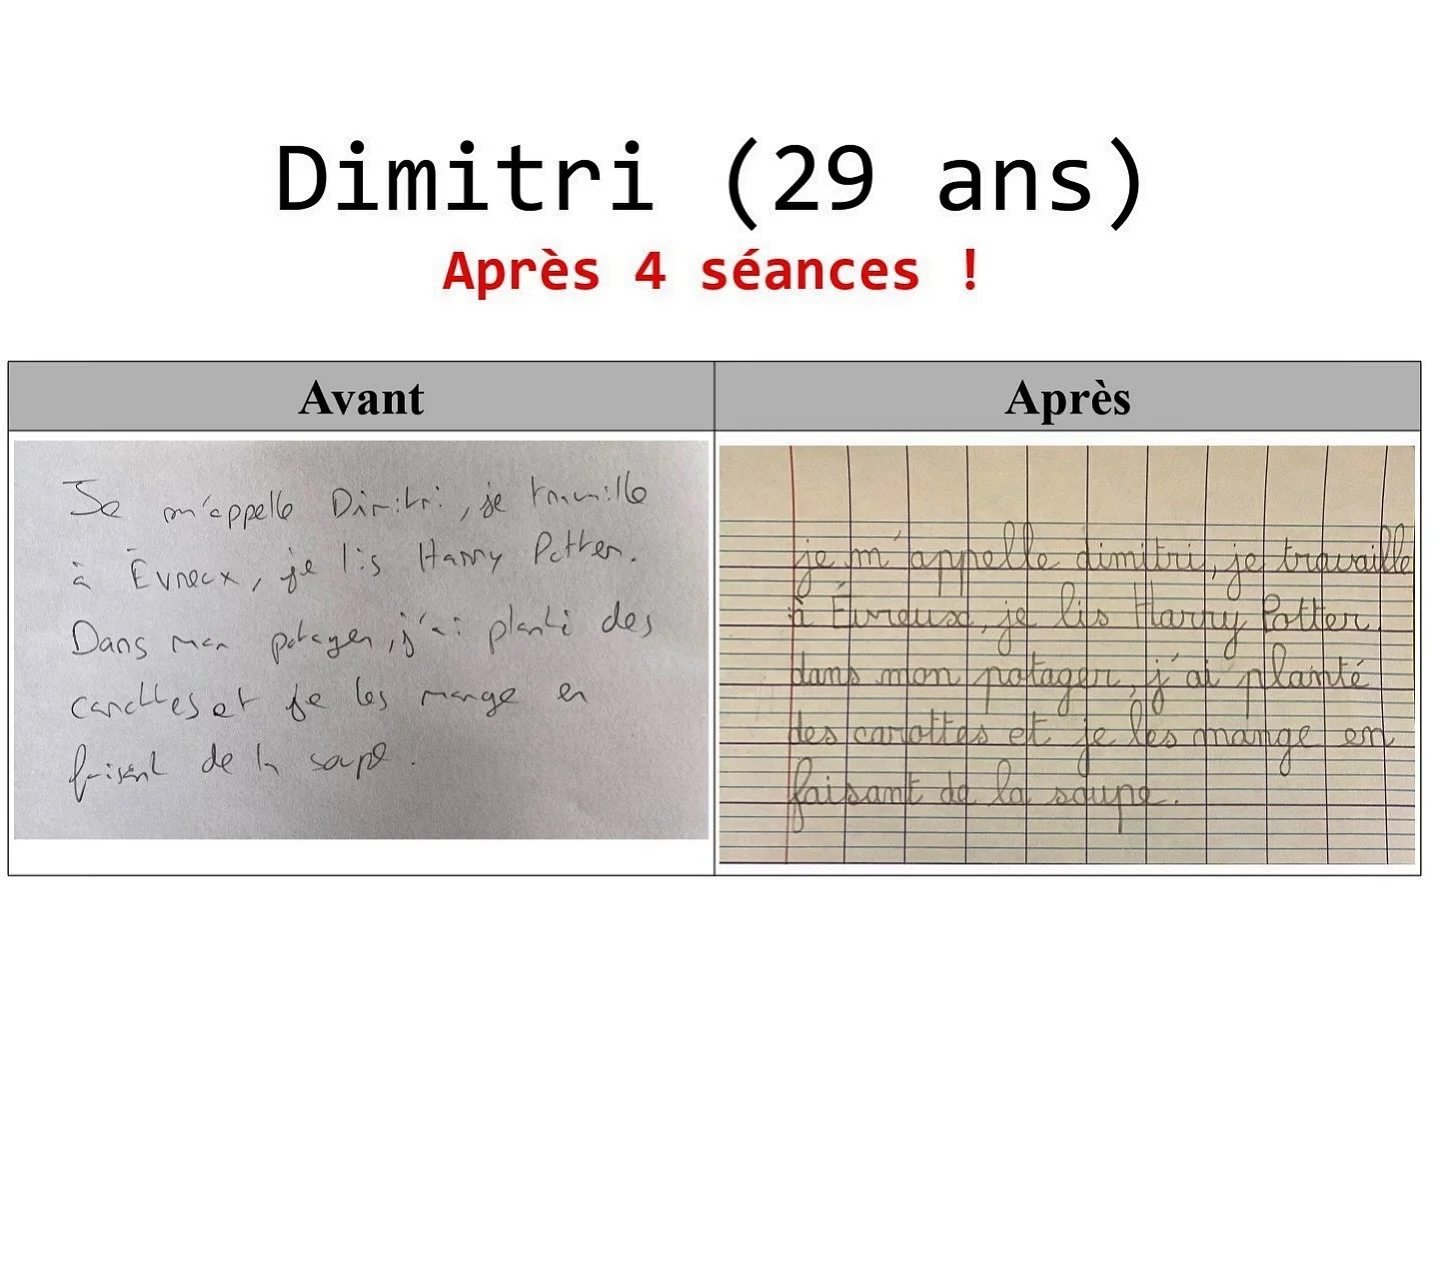 Dimitri (29 ans)
Après 4 séances !
Avant
Je m'appelle Dimitri, je travaille
à Évreux, je lis Harry Potter.
Dans mon potager, j'ai planté des
carottes et je les mange en
faisant de la soupe.
Après
je m'appelle dimitri, je travaille
à Évreux, je lis Harry Potter
dans mon potager, j'ai planté
des carottes et je les mange en
faisant de la soupe.